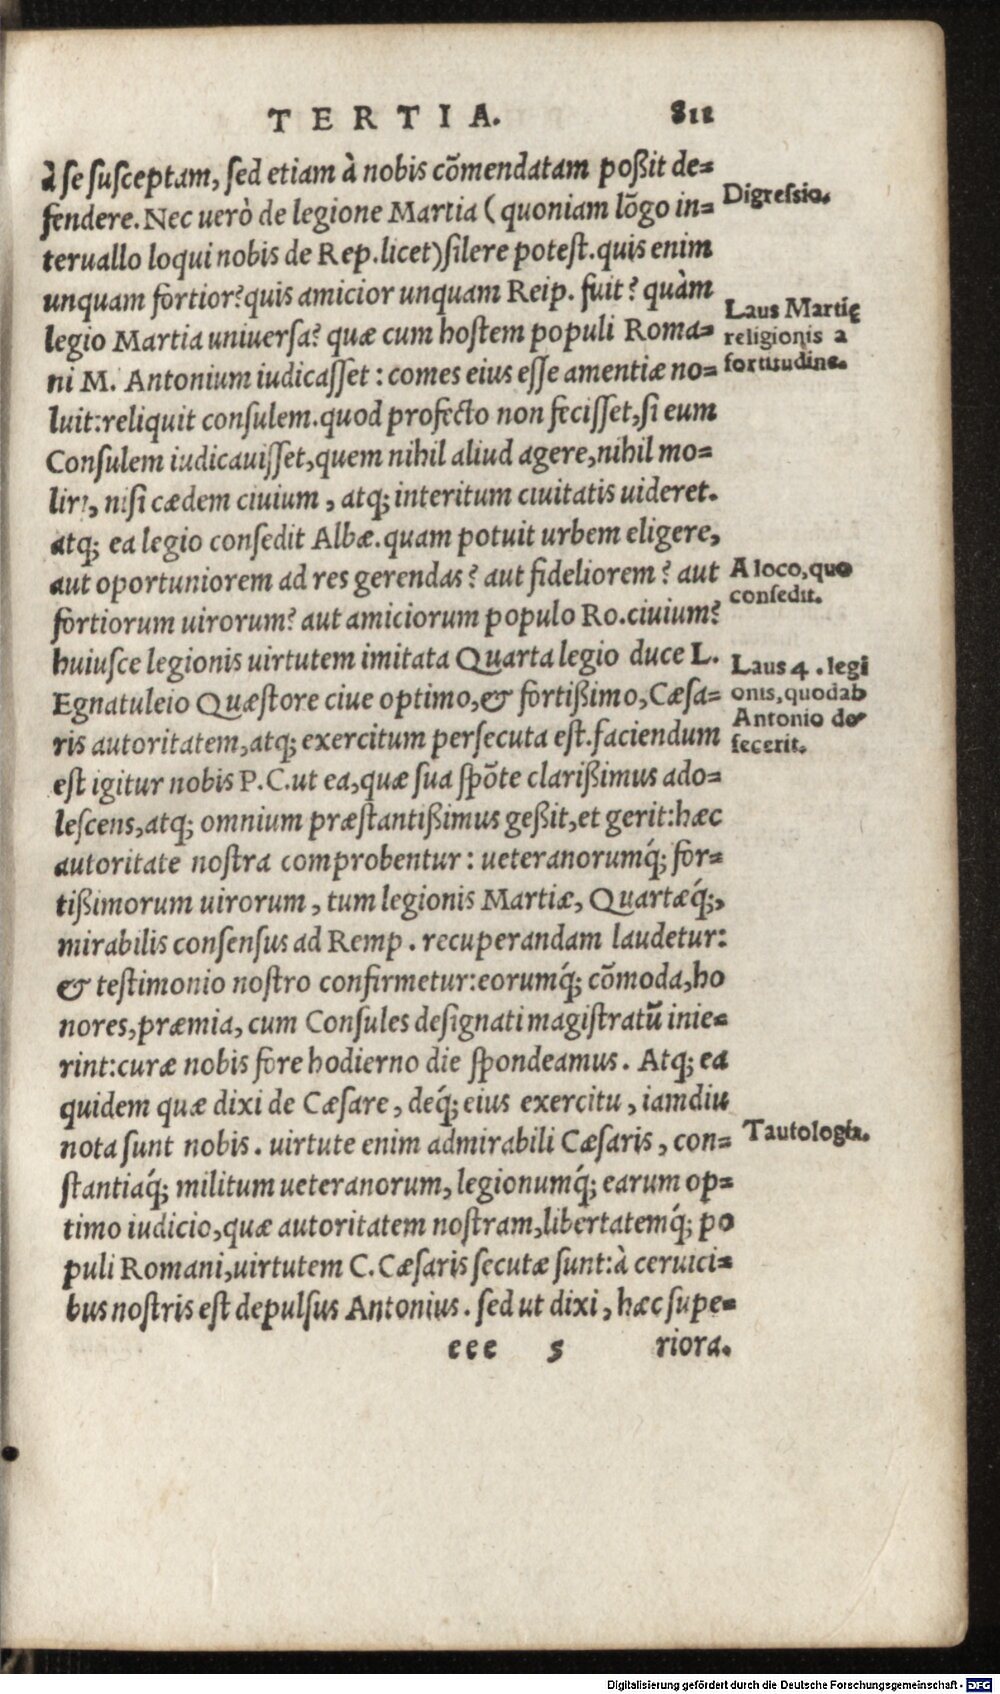 TERTIA. 811
à se susceptam, sed etiam à nobis cõmendatam poßit de=
fendere. Nec uerò de legione Martia (quoniam lõgo in=
teruallo loqui nobis de Rep. licet) silere potest. quis enim
unquam fortior? quis amicior unquam Reip. fuit? quàm
legio Martia uniuersa? quæ cum hostem populi Roma=
ni M. Antonium iudicasset: comes eius esse amentiæ no=
luit: reliquit consulem. quod profecto non fecisset, si eum
Consulem iudicauisset, quem nihil aliud agere, nihil mo=
liri, nisi cædem ciuium, atq; interitum ciuitatis uideret.
atq; ea legio consedit Albæ. quam potuit urbem eligere,
aut oportuniorem ad res gerendas? aut fideliorem? aut
fortiorum uirorum? aut amiciorum populo Ro. ciuium?
huiusce legionis uirtutem imitata Quarta legio duce L.
Egnatuleio Quæstore ciue optimo, & fortißimo, Cæsa=
ris autoritatem, atq; exercitum persecuta est. faciendum
est igitur nobis P.C. ut ea, quæ sua spõte clarißimus ado=
lescens, atq; omnium præstantißimus geßit, et gerit: hæc
autoritate nostra comprobentur: ueteranorumq́; for=
tißimorum uirorum, tum legionis Martiæ, Quartæq́;,
mirabilis consensus ad Remp. recuperandam laudetur:
& testimonio nostro confirmetur: eorumq́; cõmoda, ho
nores, præmia, cum Consules designati magistratũ inie=
rint: curæ nobis fore hodierno die spondeamus. Atq; ea
quidem quæ dixi de Cæsare, deq́; eius exercitu, iamdiu
nota sunt nobis. uirtute enim admirabili Cæsaris, con=
stantiaq́; militum ueteranorum, legionumq́; earum op=
timo iudicio, quæ autoritatem nostram, libertatemq́; po
puli Romani, uirtutem C. Cæsaris secutæ sunt: à ceruici=
bus nostris est depulsus Antonius. sed ut dixi, hæc supe=
eee 5 riora.
Digressio.
Laus Martię
religionis a
fortitudine.
A loco, quo
consedit.
Laus 4. legi
onis, quod ab
Antonio de=
fecerit.
Tautologia.
Digitalisierung gefördert durch die Deutsche Forschungsgemeinschaft - DFG